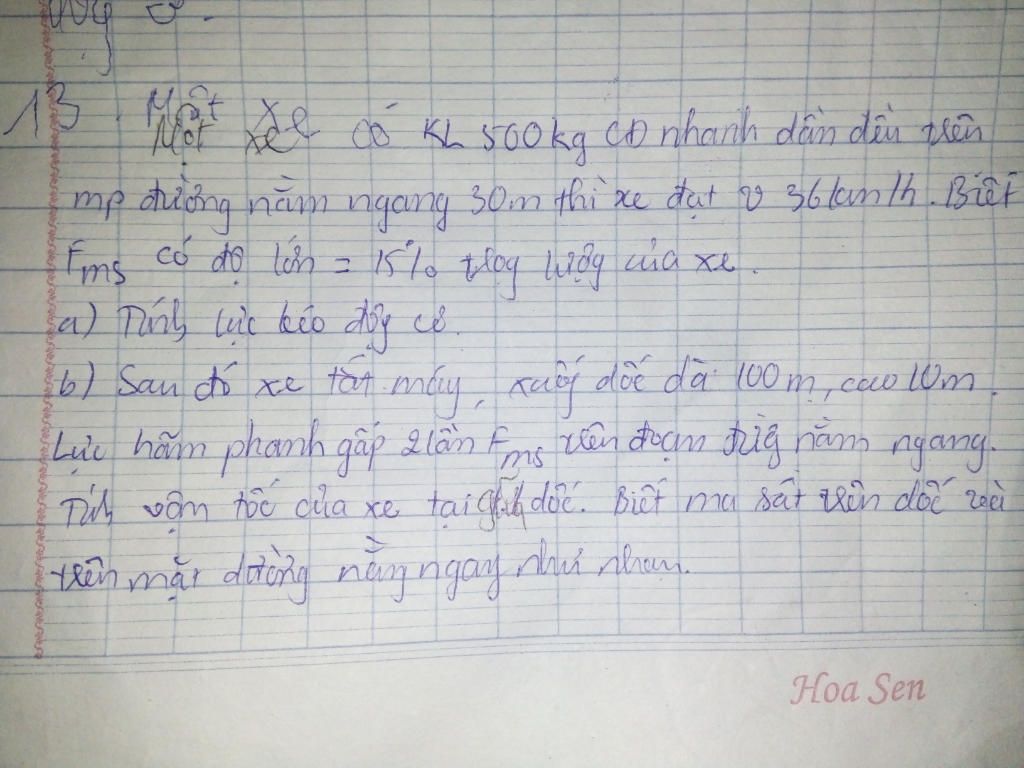 13. Một xe
Một xe có KL 500kg CĐ nhanh dần đều trên
mp đường nằm ngang 30m thì xe đạt v 36km/h. Biết
Fms có độ lớn = 15% trọg lượg của xe.
a) Tính lực kéo độg cơ.
b) Sau đó xe tắt máy, xuốg dốc dài 100m, cao 10m.
Lực hãm phanh gấp 2 lần Fms trên đoạn đườg nằm ngang.
Tính vận tốc của xe tại dốc. Biết ma sát trên dốc và
trên mặt đường nằm ngay như nhau.
Hoa Sen